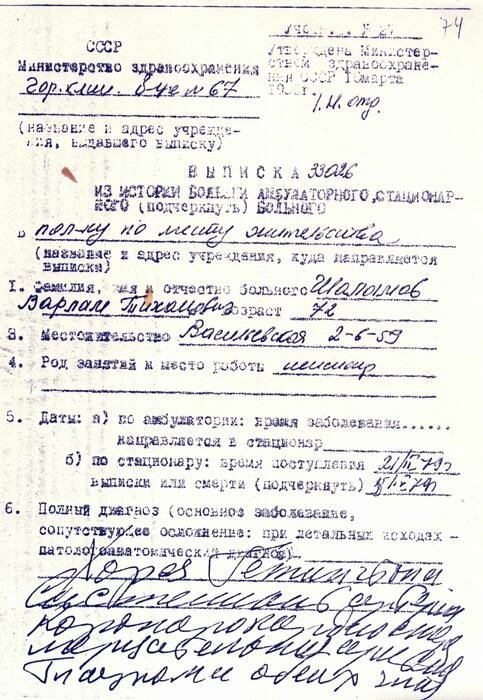 74
СССР
Министерство здравоохранения
гор. клин. б-це № 67
Утверждена Министер-
ством здравоохране-
ния СССР
(название и адрес учрежде-
ния, выдавшего выписку)
ВЫПИСКА 33026
ИЗ ИСТОРИИ БОЛЕЗНИ АМБУЛАТОРНОГО, СТАЦИОНАР-
НОГО (подчеркнуть) БОЛЬНОГО
в пол-ку по месту жительства
(название и адрес учреждения, куда направляется
выписка)
I. Фамилия, имя и отчество больного Шаламов
Варлам Тихонович возраст 72
3. Местожительство Васильевская 2-6-59
4. Род занятий и место работы пенсионер
5. Даты: а) по амбулатории: время заболевания......
направляется в стационар
б) по стационару: время поступления
выписки или смерти (подчеркнуть)
6. Полный диагноз (основное заболевание,
сопутствующее осложнение: при летальных исходах -
патологоанатомический диагноз).
Хорея Гетингтона
коронарокардиосклероз
Глаукома обеих глаз